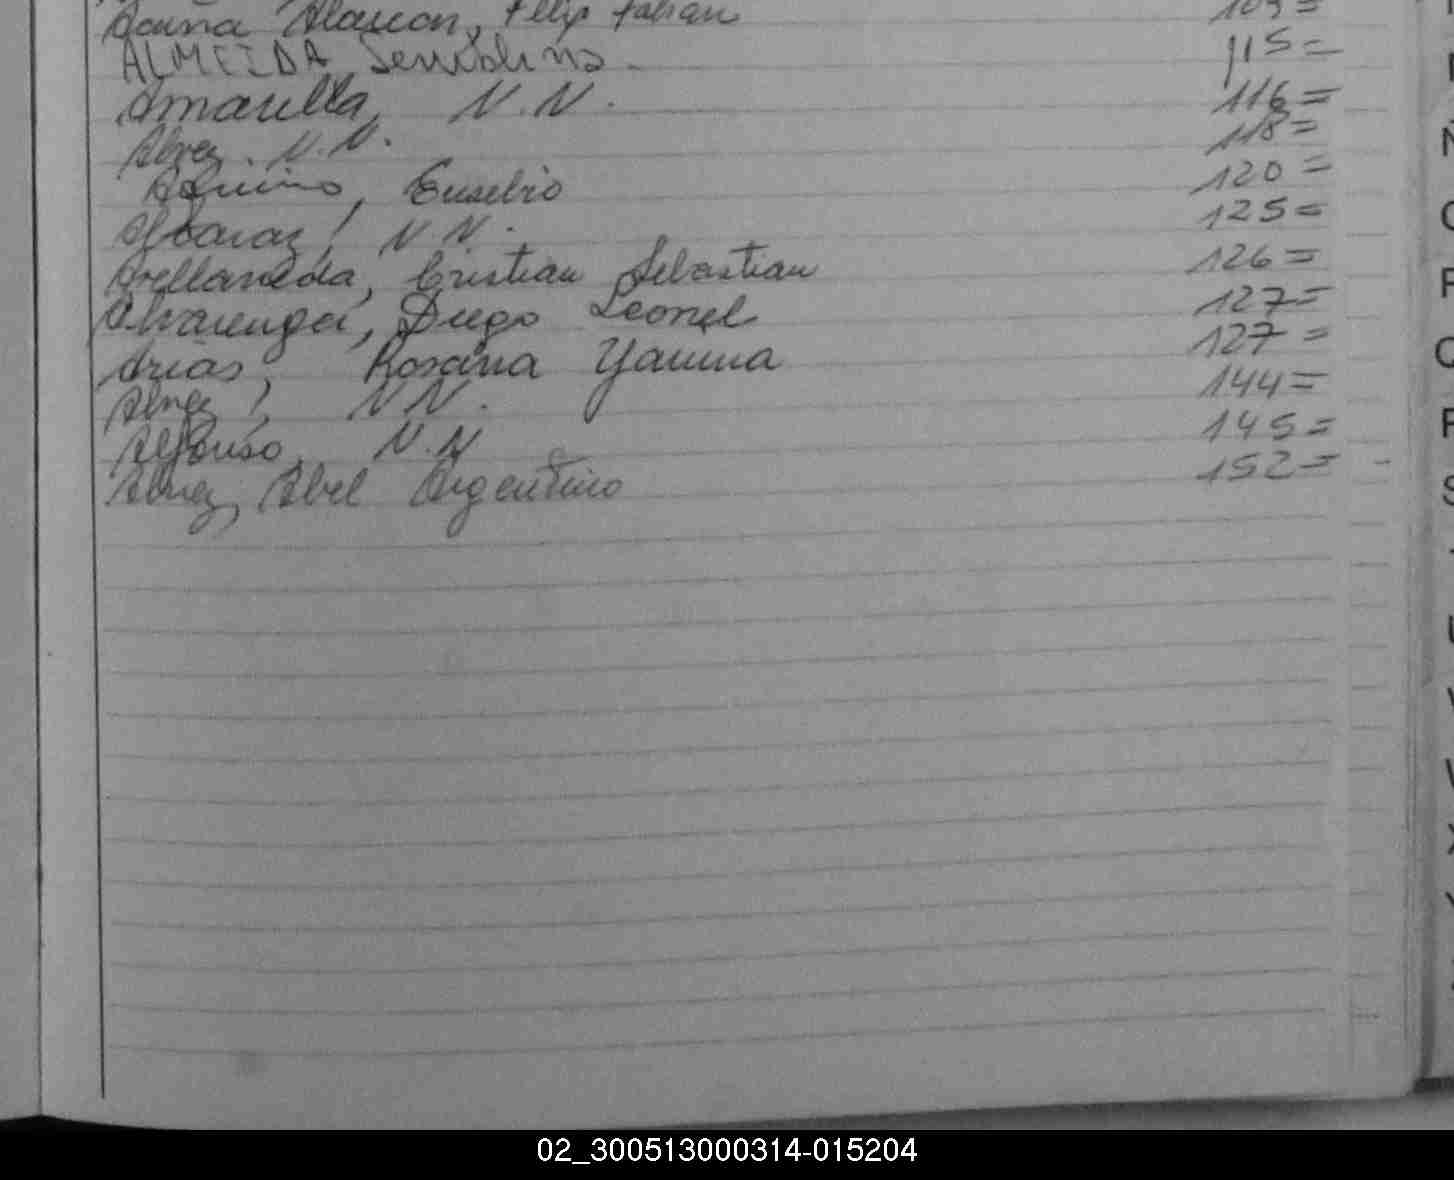 Acuña Alarcon, Felix Fabian 109=
ALMEIDA Senublino 115=
Amarilla, N.N. 116=
Alvez. N.N. 118=
Aquino, Eusebio 120=
Alcaraz, N.N. 125=
Avellaneda, Cristian Sebastian 126=
Alvarenga, Diego Leonel 127=
Arias, Rosana Yanina 127=
Alvez, N N. 144=
Alfonso, N.N 145=
Alvez, Abel Argentino 152= -
02_300513000314-015204